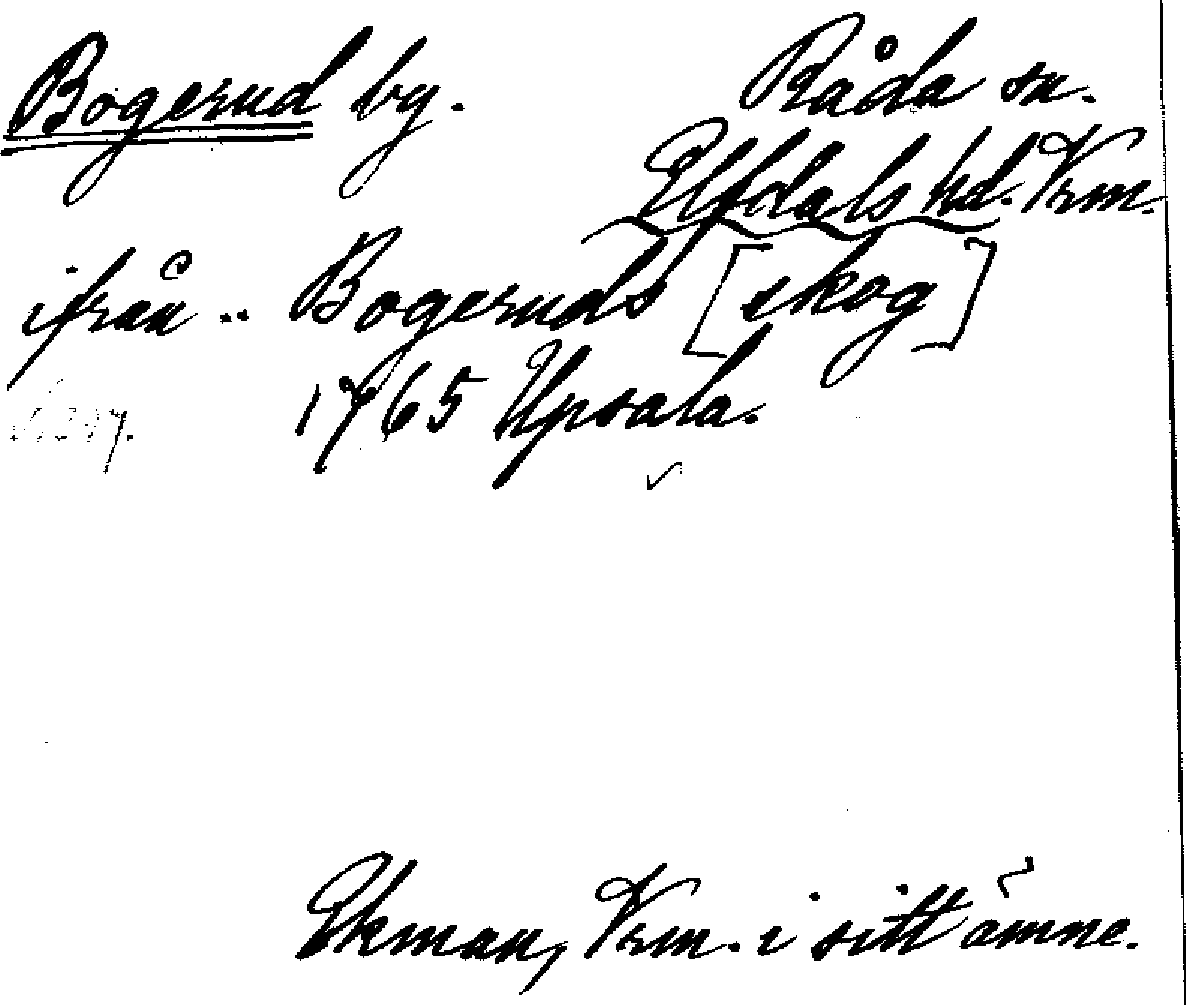 Bogerud by.
Råda sn.
Elfdals hd. Vrm.
ifrån .. Bogeruds [skog]
1765 Upsala.
Ekman, Vrm. i sitt ämne.